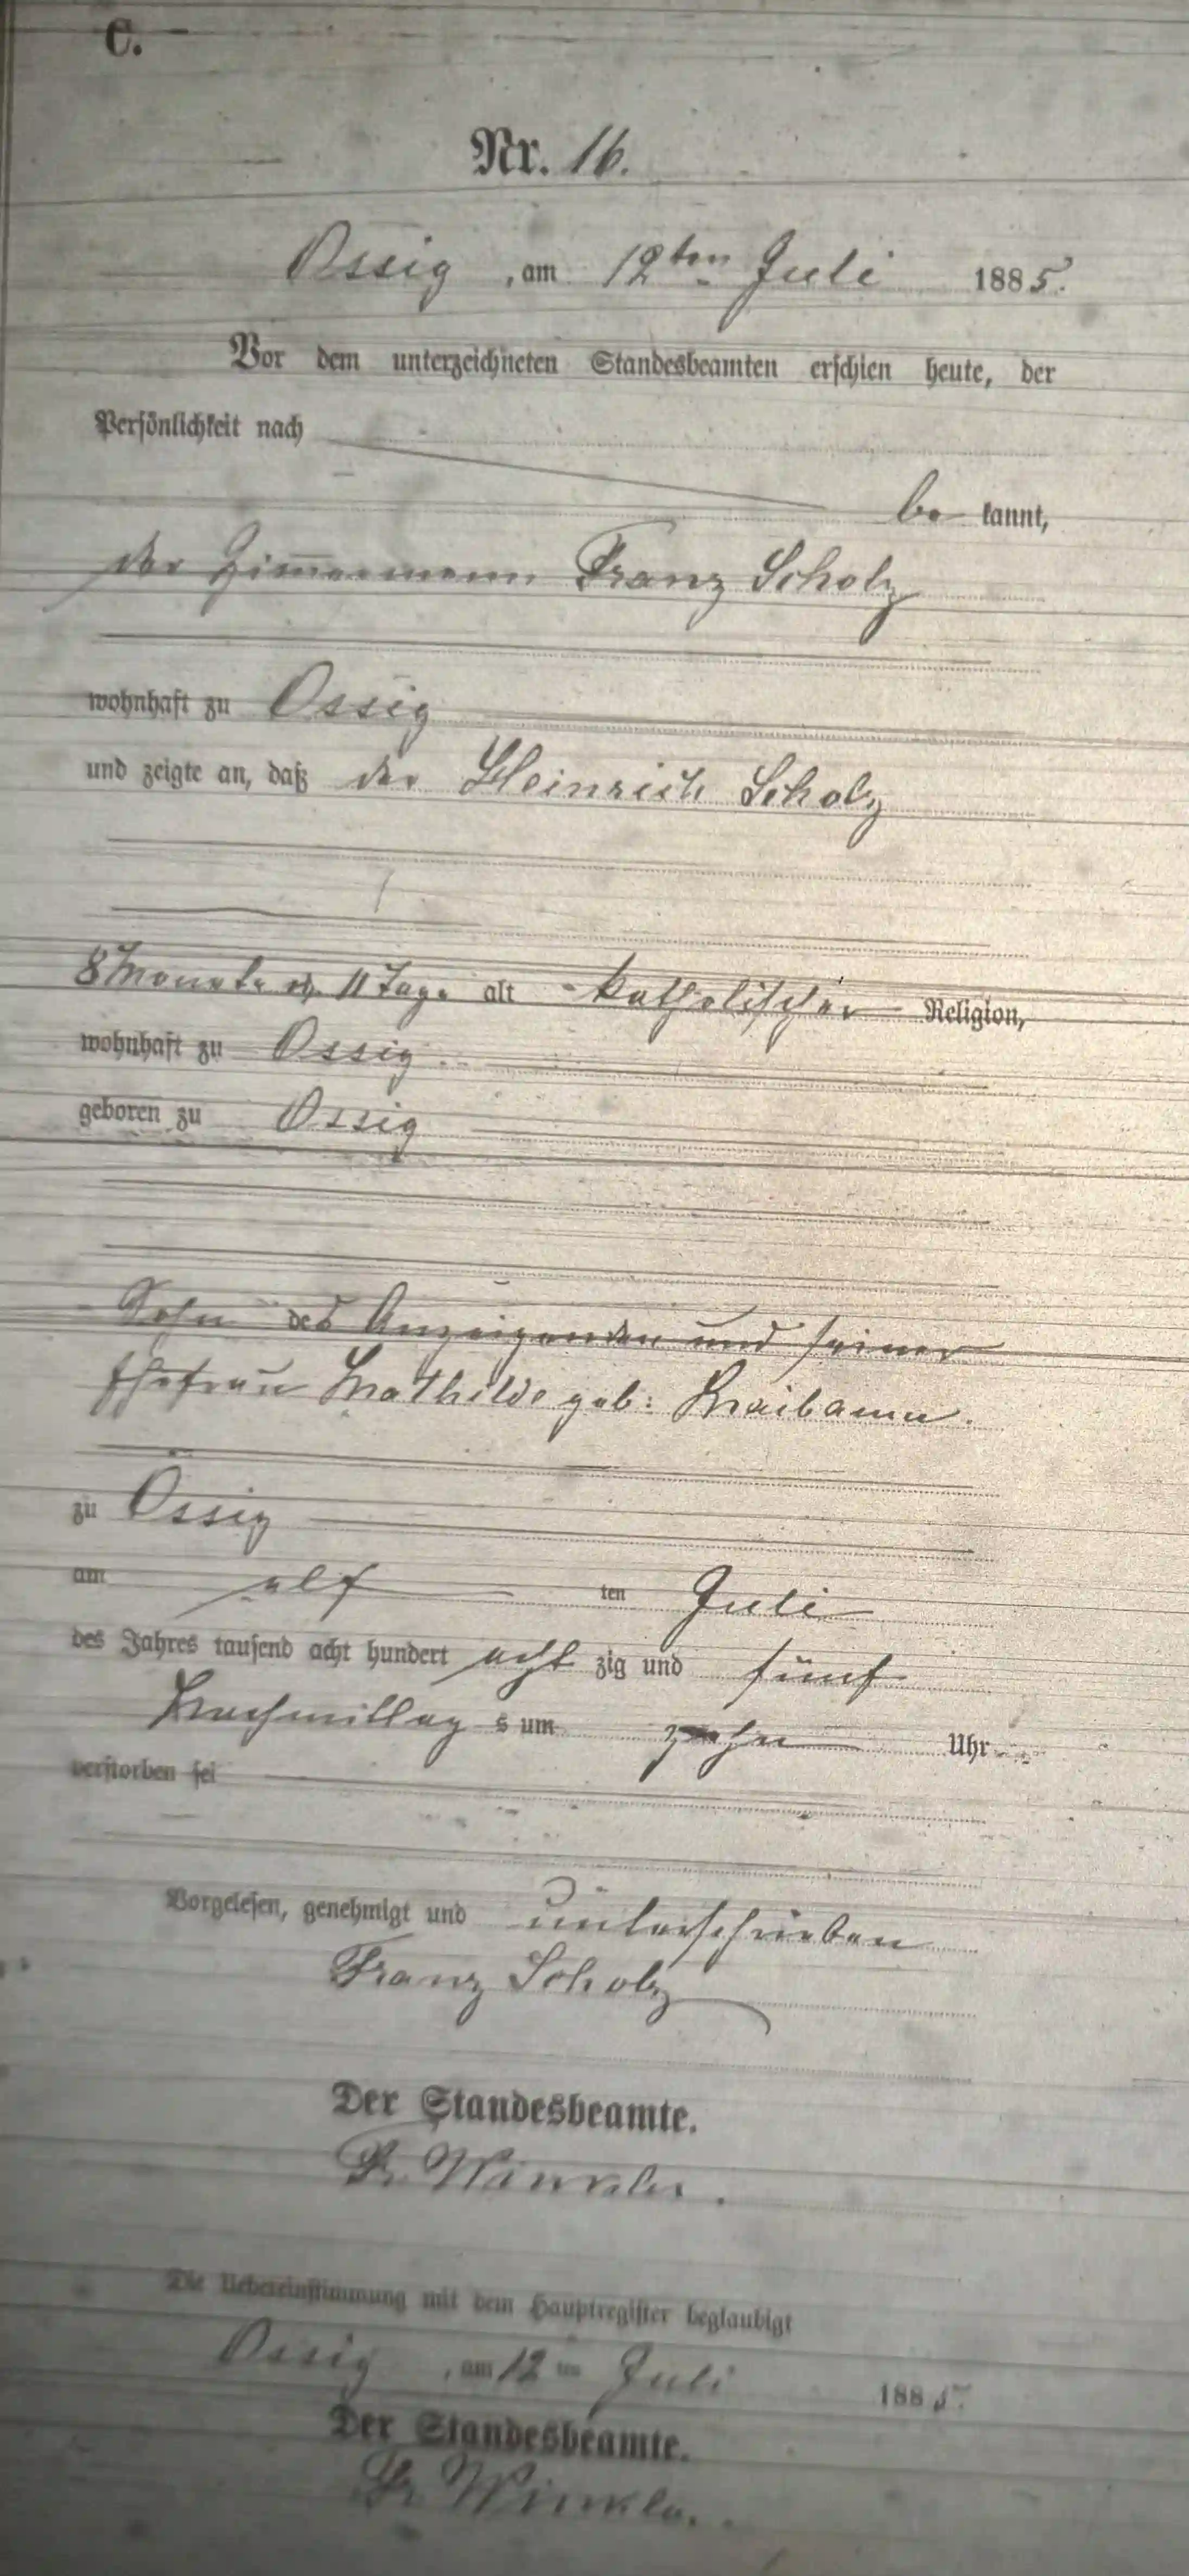 C.
Nr. 16.
Ossig, am 12ten Juli 1885.
Vor dem unterzeichneten Standesbeamten erschien heute, der
Persönlichkeit nach
be kannt,
der Zim̅ermann Franz Scholz
wohnhaft zu Ossig
und zeigte an, daß der Heinrich Scholz
8 Monate u. 11 Tage alt katholischer Religion,
wohnhaft zu Ossig
geboren zu Ossig
Sohn des Anzeigenden und seiner
Ehefrau Mathilde geb:
zu Ossig
am elf ten Juli
des Jahres tausend acht hundert acht zig und fünf
Nachmittag s um zehn Uhr
verstorben sei
Vorgelesen, genehmigt und unterschrieben
Franz Scholz
Der Standesbeamte.
Winkler.
Die Uebereinstimmung mit dem Hauptregister beglaubigt
Ossig, am 12 ten Juli 1885.
Der Standesbeamte.
Winkler.